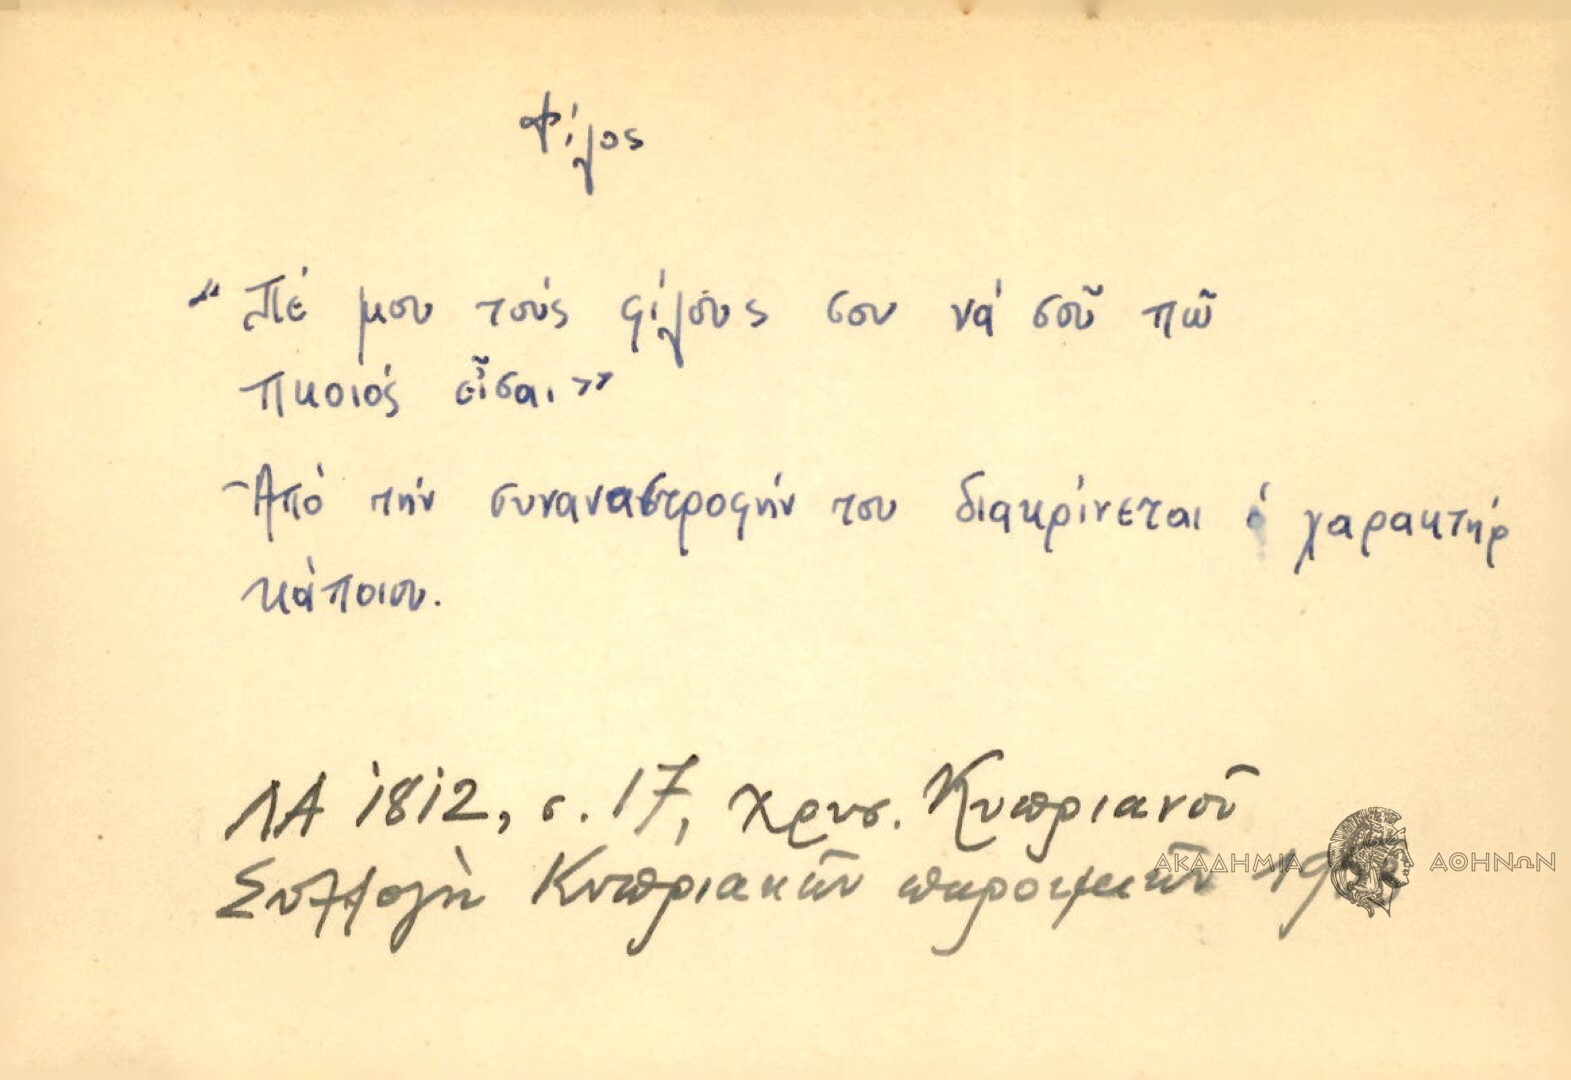 Φίλος
"Πέ μου τούς φίλους σου νά σοῦ πῶ
πκοιός εἶσαι"
Ἀπό τήν συναναστροφήν του διακρίνεται ὁ χαρακτήρ
κάποιου.
ΛΑ 1812, σ. 17, Χρυσ. Κυπριανοῦ
Συλλογὴ Κυπριακῶν παροιμιῶν
ΑΚΑΔΗΜΙΑ ΑΘΗΝΩΝ